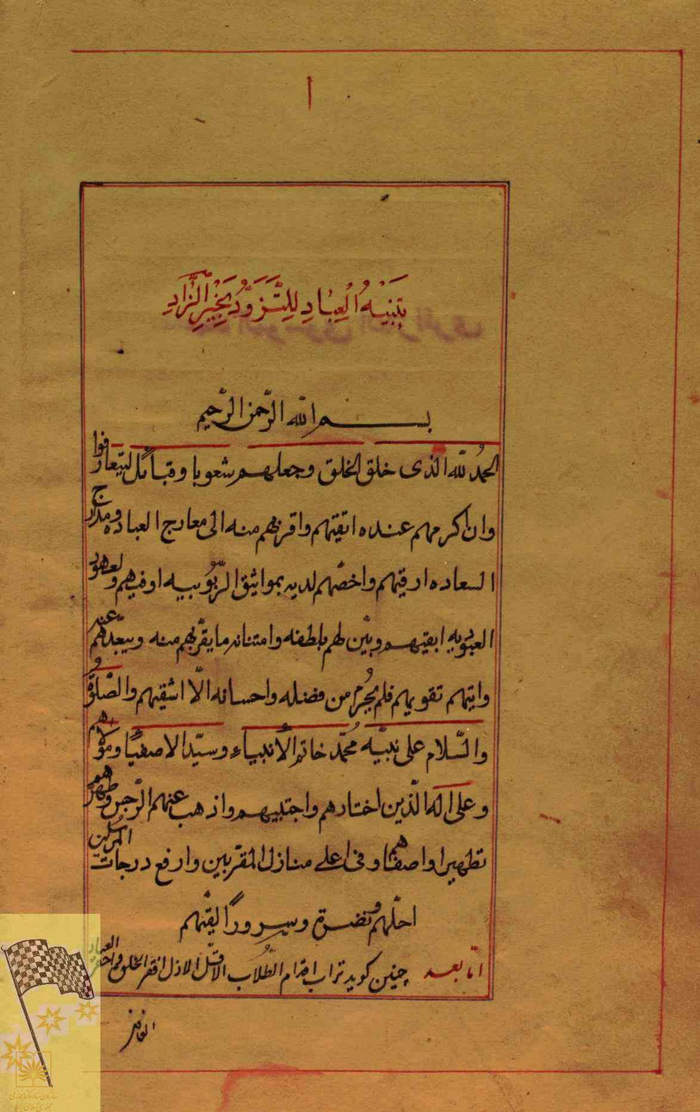 ا
تنبیه العباد للتزود بخیر الزاد
بسم الله الرحمن الرحیم
الحمد لله الذی خلق الخلق وجعلهم شعوبا وقبائل لیتعارفوا
وان اکرمهم عنده اتقیهم واقربهم منه الی معارج العباده ومدارج
السعاده ارقیهم واخصهم لدیه بمواثیق الربوبیه اوفیهم ولعهود
العبودیه ابقیهم وبین لهم بلطفه وامتنانه ما یقربهم منه ویبعدهم عنه
واتیهم تقویهم فلم یحرم من فضله واحسانه الا اشقیهم والصلوة
والسلام علی نبیه محمد خاتم الانبیاء وسید الاصفیا ومولاهم
وعلی اله الذین اختارهم واجتبیهم واذهب عنهم الرجس وطهرهم
تطهیرا واصفاهم وفی اعلی منازل المقربین وارفع درجات المرسلین
احلهم ونضرة وسرورا لقیهم
اما بعد چنین کوید تراب اقدام الطلاب الاقل الاذل افقر الخلق واحقر العباد